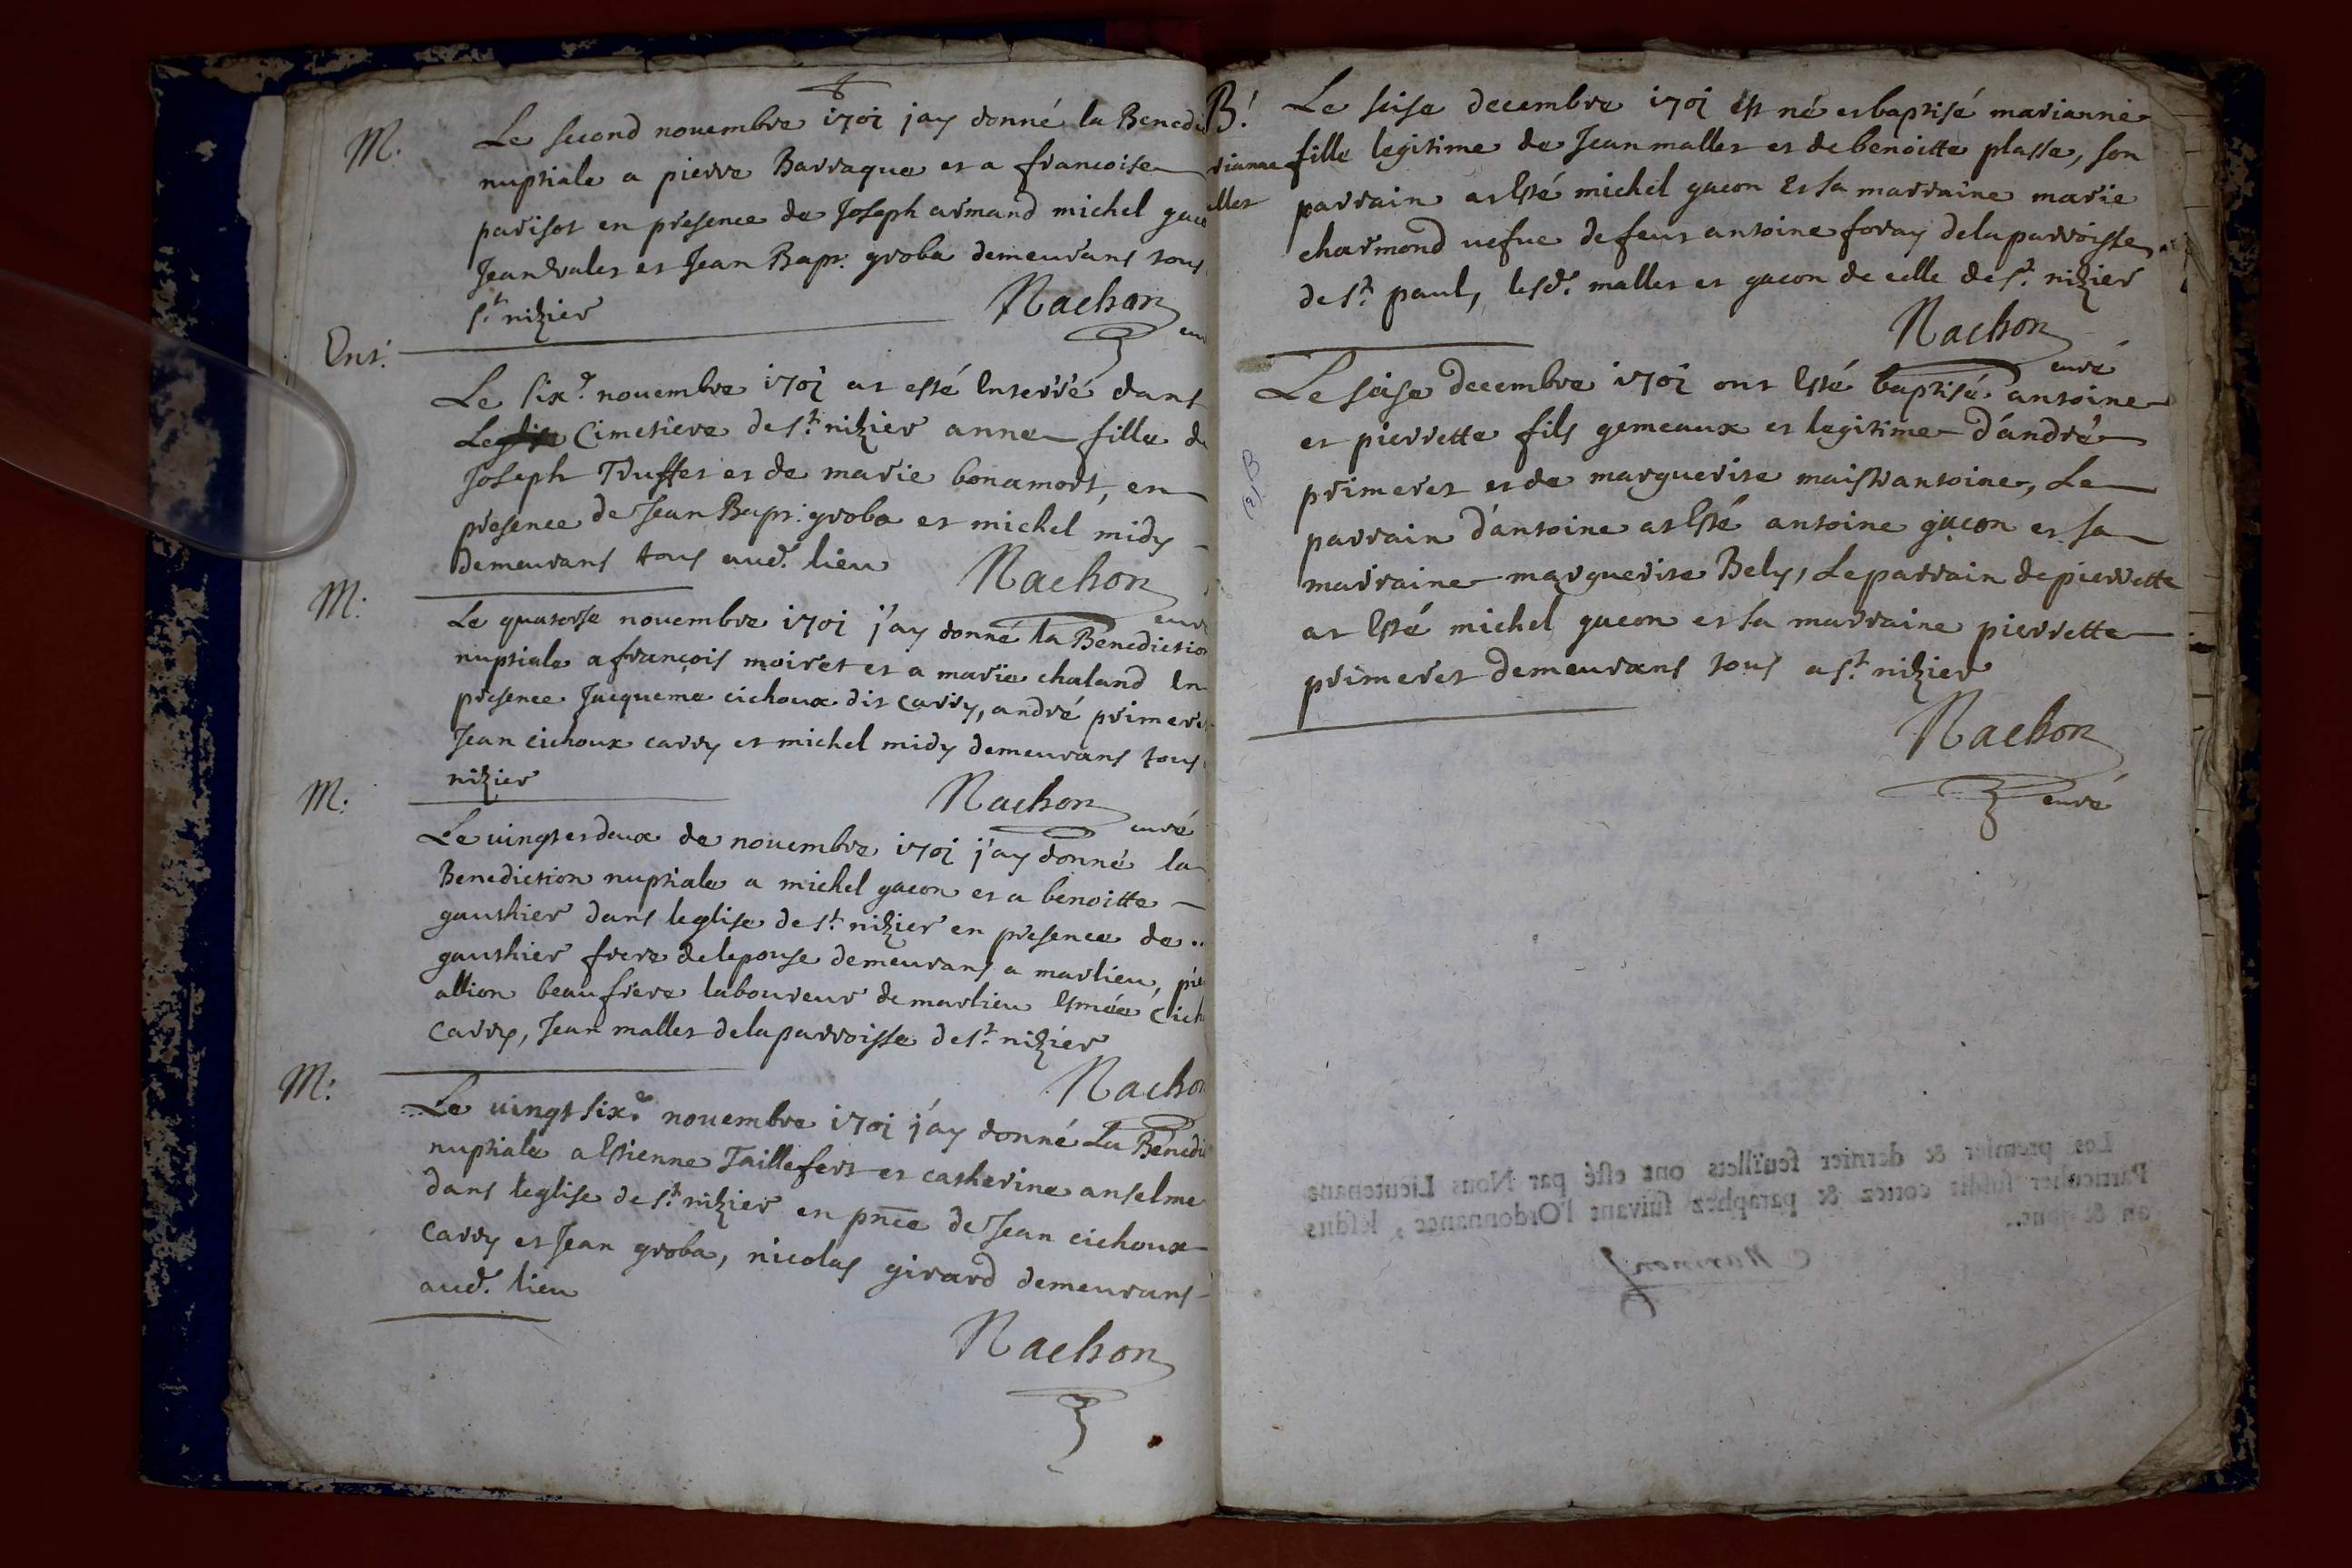 M. Le second novembre 1701 j'ay donné la Benedi
nuptiale a pierre Barraque et a francoise
parisot en presence de Joseph armand michel gaco
Jean valet et Jean Bapt. groba demeurans tous
st. nizier
Nachon
cu
Ent.
Le six.e novembre 1701 at esté Enterré dans
Leglise Cimetiere de st. nizier anne fille de
Joseph Truffet et de marie bonamort, en
presence de Jean Bapt. groba et michel midy
demeurans tous aud. lieu
Nachon
curé
M.
Le quatorse novembre 1701 j'ay donné la Benediction
nuptiale a françois moiret et a marie chaland En
presence Jacqueme cichoux dit carry, andré primeret
Jean cichoux carry et michel midy demeurans tous
nizier
Nachon
curé
M.
Le vingt et deux de novembre 1701 j'ay donné la
Benediction nuptiale a michel gacon et a benoitte
gauthier dans leglise de st. nizier en presence de ..
gauthier frere de lepouse demeurans a marlieu, pie
allion beaufrere laboureur de marlieu Esmée Cich
carry, Jean mallet de la parroisse de st. nizier
Nachon
M.
Le vingt six.e novembre 1701 j'ay donné La Benedi
nuptiale a Estienne Taillefert et catherine anselme
dans leglise de st. nizier en pnce de Jean cichoux
Carry et Jean groba, nicolas girard demeurans
aud. lieu
Nachon
B.
rianne
llet
Le seise decembre 1701 Est né et baptisé marianne
fille legitime de Jean mallet et de benoitte plasse, son
parrain at Esté michel gacon Et sa marraine marie
charmond vefue de feut antoine foray de la parroisse
de st. paul, lesd. mallet et gacon de celle de st. nizier
Nachon
curé
Le seise decembre 1701 ont Esté baptisé antoine
et pierrette fils gemeaux et legitime d'andré
primeret et de marguerite maistrantoine, Le
parrain d'antoine at Esté antoine gacon et sa
marraine marguerite Bely, Le parrain de pierrette
at Esté michel gacon et sa marraine pierrette
primeret demeurans tous a st. nizier
Nachon
curé
Les premier & dernier feüillets ont esté par Nous Lieutenant
Particulier susdit cottez & paraphez suivant l'Ordonnance, lesdits
an & jour.